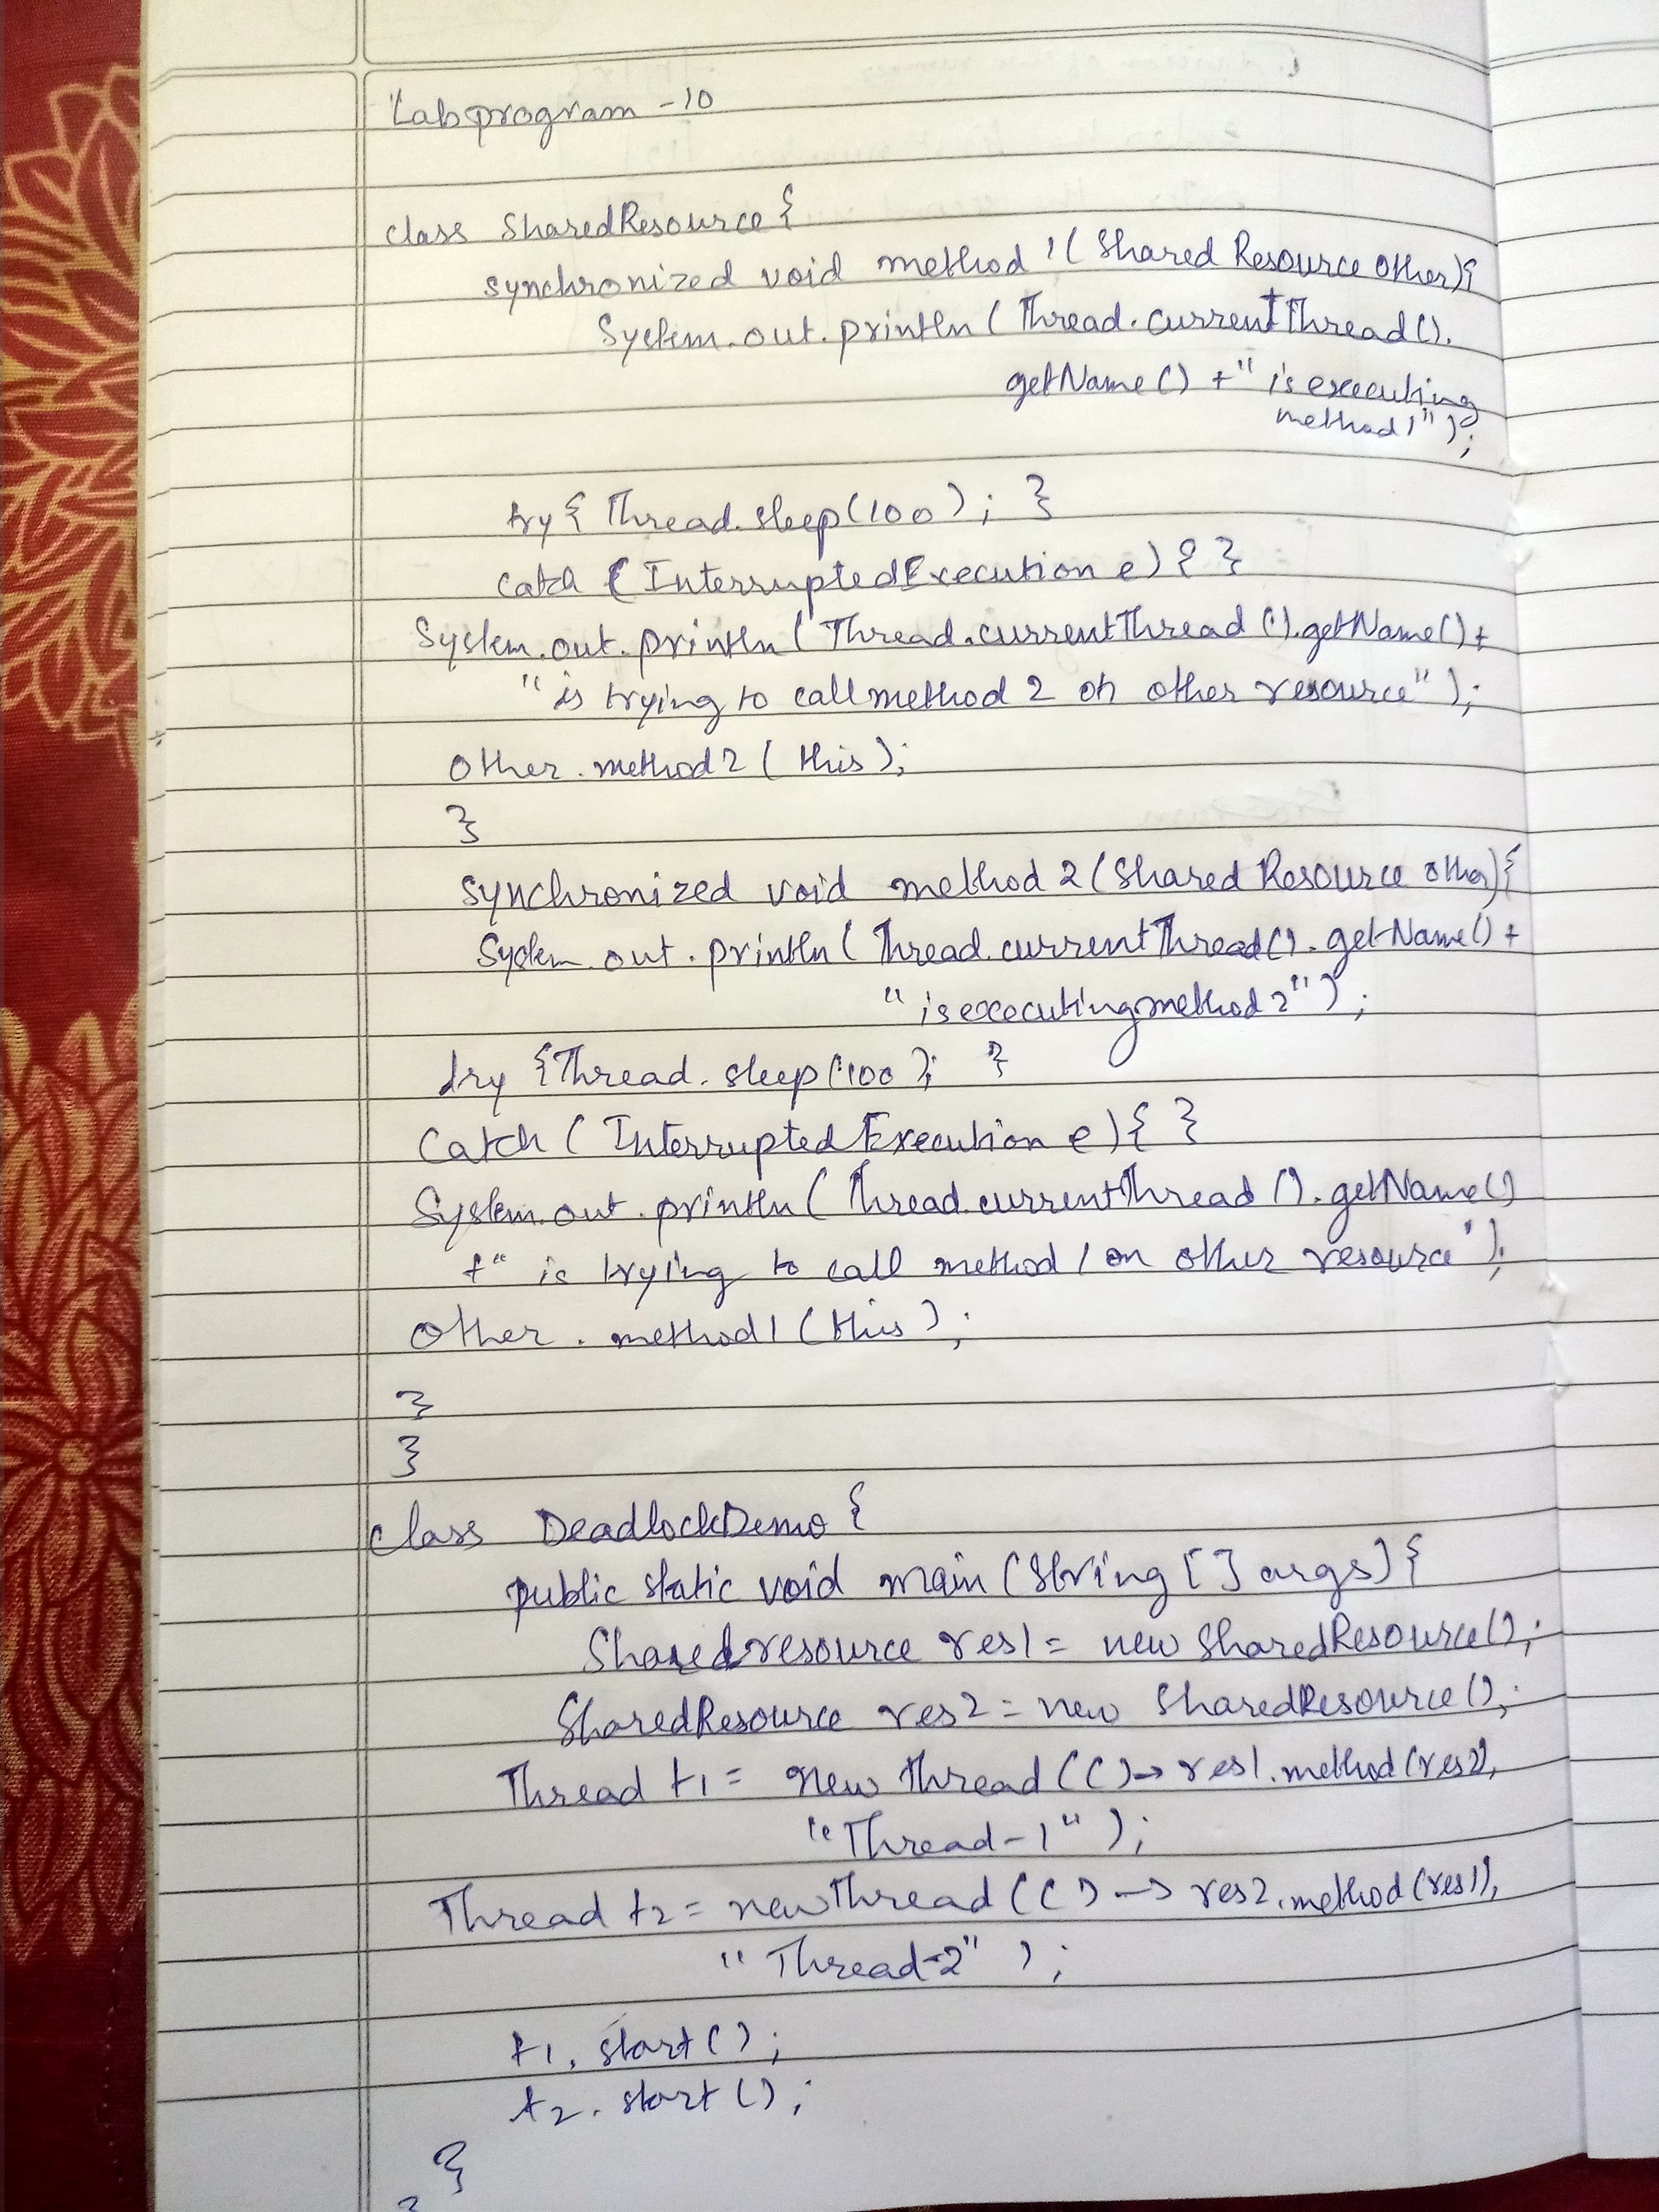 Lab program - 10
class SharedResource {
synchronized void method 1( Shared Resource other){
System.out.println ( Thread.currentThread().
getName() +" is executing
method1" );
try { Thread.sleep(100); }
catch ( InterruptedExecution e) { }
System.out.println ( Thread.currentThread().getName() +
" is trying to call method 2 on other resource" );
other.method2 ( this );
}
synchronized void method 2 (Shared Resource other){
System.out.println ( Thread.currentThread().getName() +
" is executing method 2" );
try {Thread.sleep(100); }
Catch ( InterruptedExecution e){ }
System.out.println ( Thread.currentThread().getName()
+" is trying to call method 1 on other resource");
other.method1 (this);
}
}
class DeadlockDemo {
public static void main (String [] args) {
Sharedresource res1 = new SharedResource();
SharedResource res2 = new SharedResource();
Thread t1 = new Thread (() -> res1.method(res2),
"Thread-1" );
Thread t2 = new Thread (() -> res2.method(res1),
"Thread-2" );
t1.start();
t2.start();
}
}